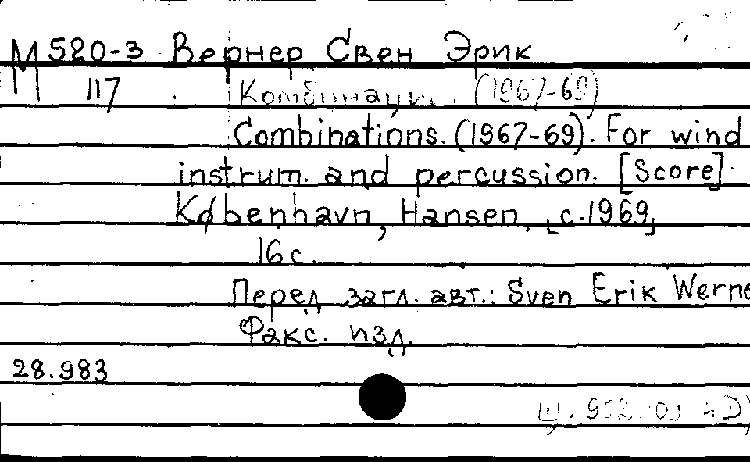 М 520-3 Вернер Свен Эрик
117 Комбинации. (1967-69)
Combinations. (1967-69). For wind
instrum. and percussion. [Score].
København, Hansen, [c.1969]
16 с.
Перед загл. авт.: Sven Erik Werne
Факс. изд.
28.983